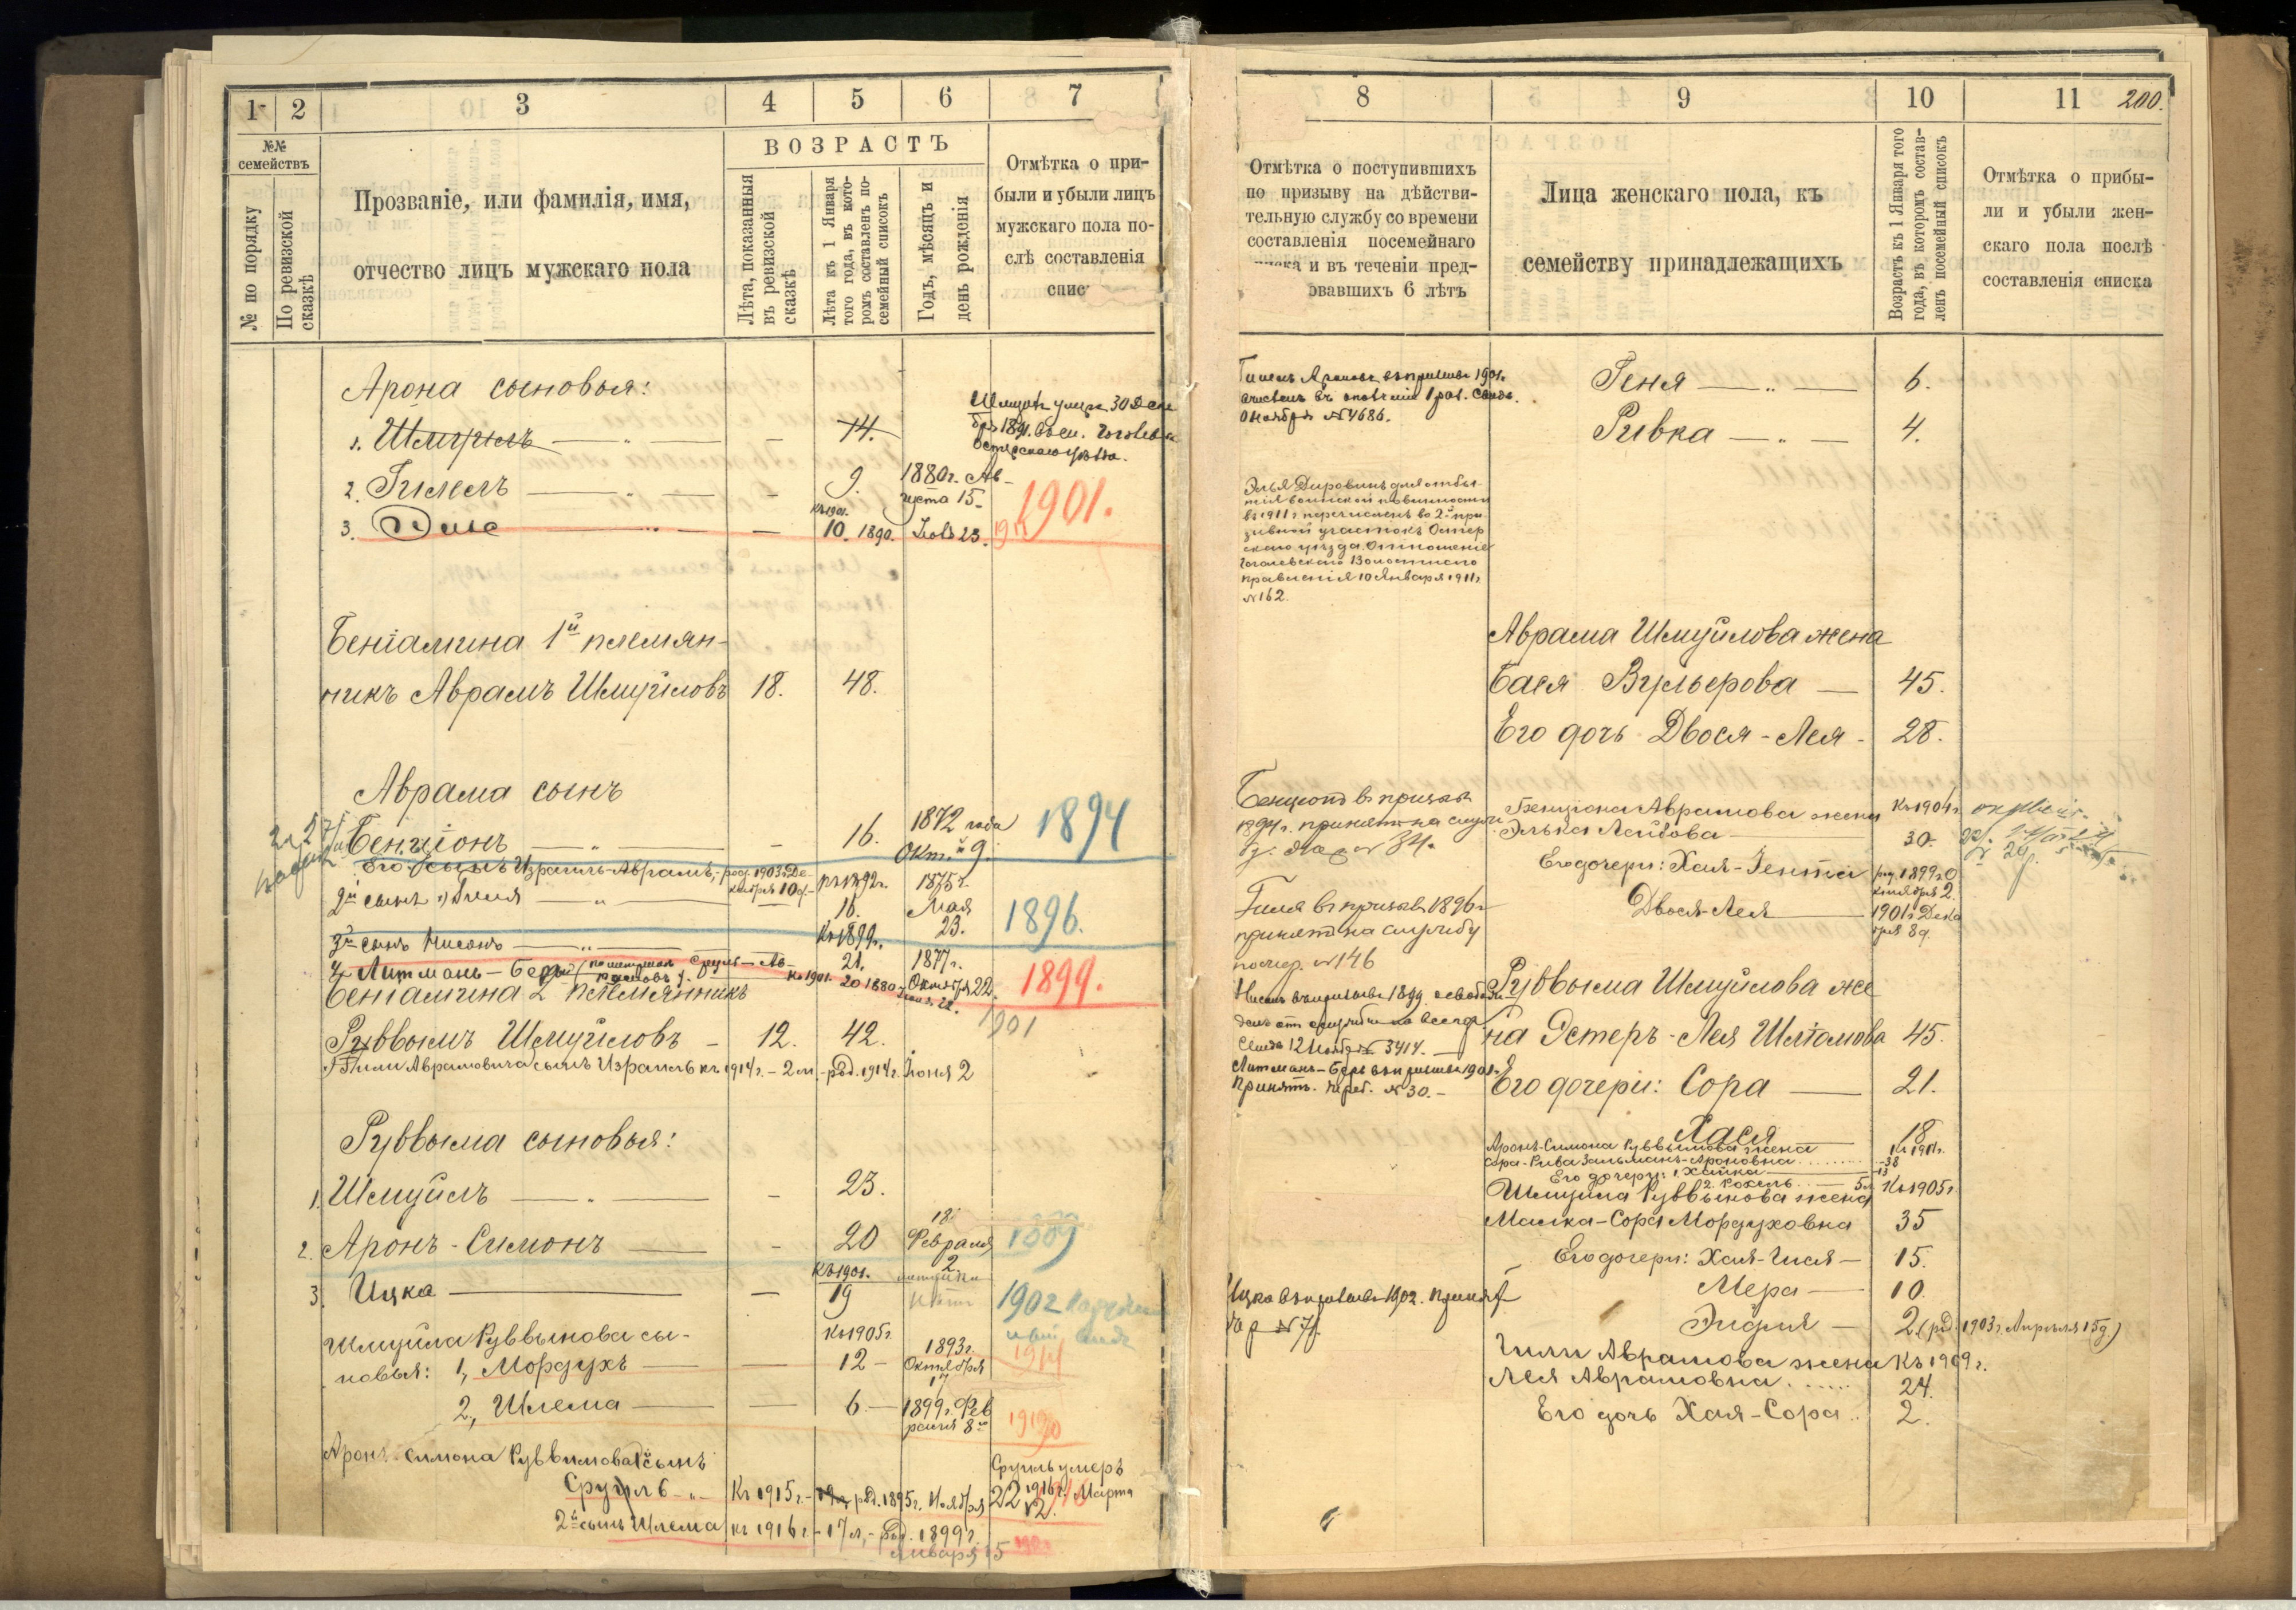 1 2 3 4 5 6 7
№№ семействъ
№ по порядку
По ревизской сказкѣ
Прозваніе, или фамилія, имя,
отчество лицъ мужскаго пола
ВОЗРАСТЪ
Лѣта, показанныя
въ ревизской
сказкѣ
Лѣта къ 1 Января
того года, въ кото-
ромъ составленъ по-
семейный списокъ
Годъ, мѣсяцъ и
день рожденія
Отмѣтка о при-
были и убыли лицъ
мужскаго пола по-
слѣ составленія
спис
Арона сыновья:
1. Шмуилъ — 14.
Шмуилъ умеръ 30 Дека
бря 1891. въ с. Гоголевѣ
Остерскаго уѣзда.
2. Гилель — 9. 1880 г. Ав-
густа 15
1901.
Къ 1901.
3. Эля — 10. 1890. Іюля 23.
Беніамина 1й племян-
никъ Аврамъ Шмуйловъ 18. 48.
Аврама сынъ
Бенціонъ — 16. 1872 года
Окт. 9.
1894
Его сынъ Израиль-Аврамъ, род. 1903 г. Де-
кабря 10 д.
2й сынъ Гиля — къ 1892 г. 16. 1875 г.
Мая
23.
1896.
3й сынъ Нисонъ — Къ 1899 г. 21. 1877 г.
Октября 22.
1899.
4 Литманъ-Беръ Къ 1901. 20 1880
1901
Беніамина 2й племянникъ
Руввымъ Шмуйловъ — 12. 42.
Гили Аврамовича сынъ Израиль къ 1914 г. - 2 м. - род. 1914 г. Іюня 2
Руввыма сыновья:
1. Шмуйлъ — 23.
2. Аронъ-Симонъ — 20 Февраля
2
Къ 1901.
3. Ицка — 19
1902
Шмуйла Руввымова сы-
новья: 1, Мордухъ — Къ 1905 г. 12 — 1893 г.
Октября
17
1914
2, Шлема — 6 — 1899 г. Фев
раля 8
1920
Аронъ Симона Руввимова сынъ
Сруль Къ 1915 г. - род. 1895 г. Ноября 22
Сруль умеръ
1916 г. Марта
12.
2й сынъ Шлема къ 1916 г. - 17 л. - Род. 1899 г.
Января 15
8 9 10 11 200.
Отмѣтка о поступившихъ
по призыву на дѣйстви-
тельную службу со времени
составленія посемейнаго
и въ теченіи пред-
овавшихъ 6 лѣтъ
Лица женскаго пола, къ
семейству принадлежащихъ
Возрастъ къ 1 Января того
года, въ которомъ состав-
ленъ посемейный списокъ
Отмѣтка о прибы-
ли и убыли жен-
скаго пола послѣ
составленія списка
Гилель Ароновъ въ призывѣ 1901 г.
зачисленъ въ ополченіе 1 раз. Свид.
Ноября № 4686.
Геня — 6.
Ривка — 4.
Эля Дировинъ для отбы-
тія воинской повинности
въ 1911 г. перечисленъ во 2й при-
зывной участокъ Остер
скаго уѣзда. Отношеніе
Гоголевскаго Волостного
Правленія 10 Января 1911 г.
№ 162.
Аврама Шмуйлова жена
Бася Вульфова — 45.
Его дочь Двося-Лея - 28.
Бенціонъ въ призывѣ
1894 г. принятъ на службу
№ 34.
Бенціона Аврамова жена Къ 1904 г.
Элька Лейбова — 30.
Его дочери: Хая-Зента род. 1899 г. О
ктября 2.
Двося-Лея — 1901 г. Дека
бря 8 д.
Гиля въ призывѣ 1896 г.
принятъ на службу
по жер. № 146
Нисонъ въ призывѣ 1899. освобож-
денъ отъ службы на всегда
Свид. 12 Ноября № 3414.
Литманъ-Беръ въ призывѣ 1901 г.
Принятъ. жереб. № 30. -
Руввыма Шмуйлова же
на Эстеръ-Лея Шліомова 45.
Его дочери: Сора — 21.
Хася — 18
Аронъ-Симона Руввымова жена Къ 1911 г.
Сора-Рива Зальманъ-Ароновна 38
Его дочери: 1 Хайка — 13
2. Рохель — 5 л.
Шмуйла Руввымова жена Къ 1905 г.
Малка-Сора Мордуховна 35
Его дочери: Хая-Гися — 15.
Мера — 10.
Эйдля — 2 (род. 1903 г. Апрѣля 15 д.)
Ицка въ призывѣ 1902. принятъ
№ 71.
Гили Аврамова жена Къ 1909 г.
Лея Аврамовна. 24.
Его дочь Хая-Сора. 2.